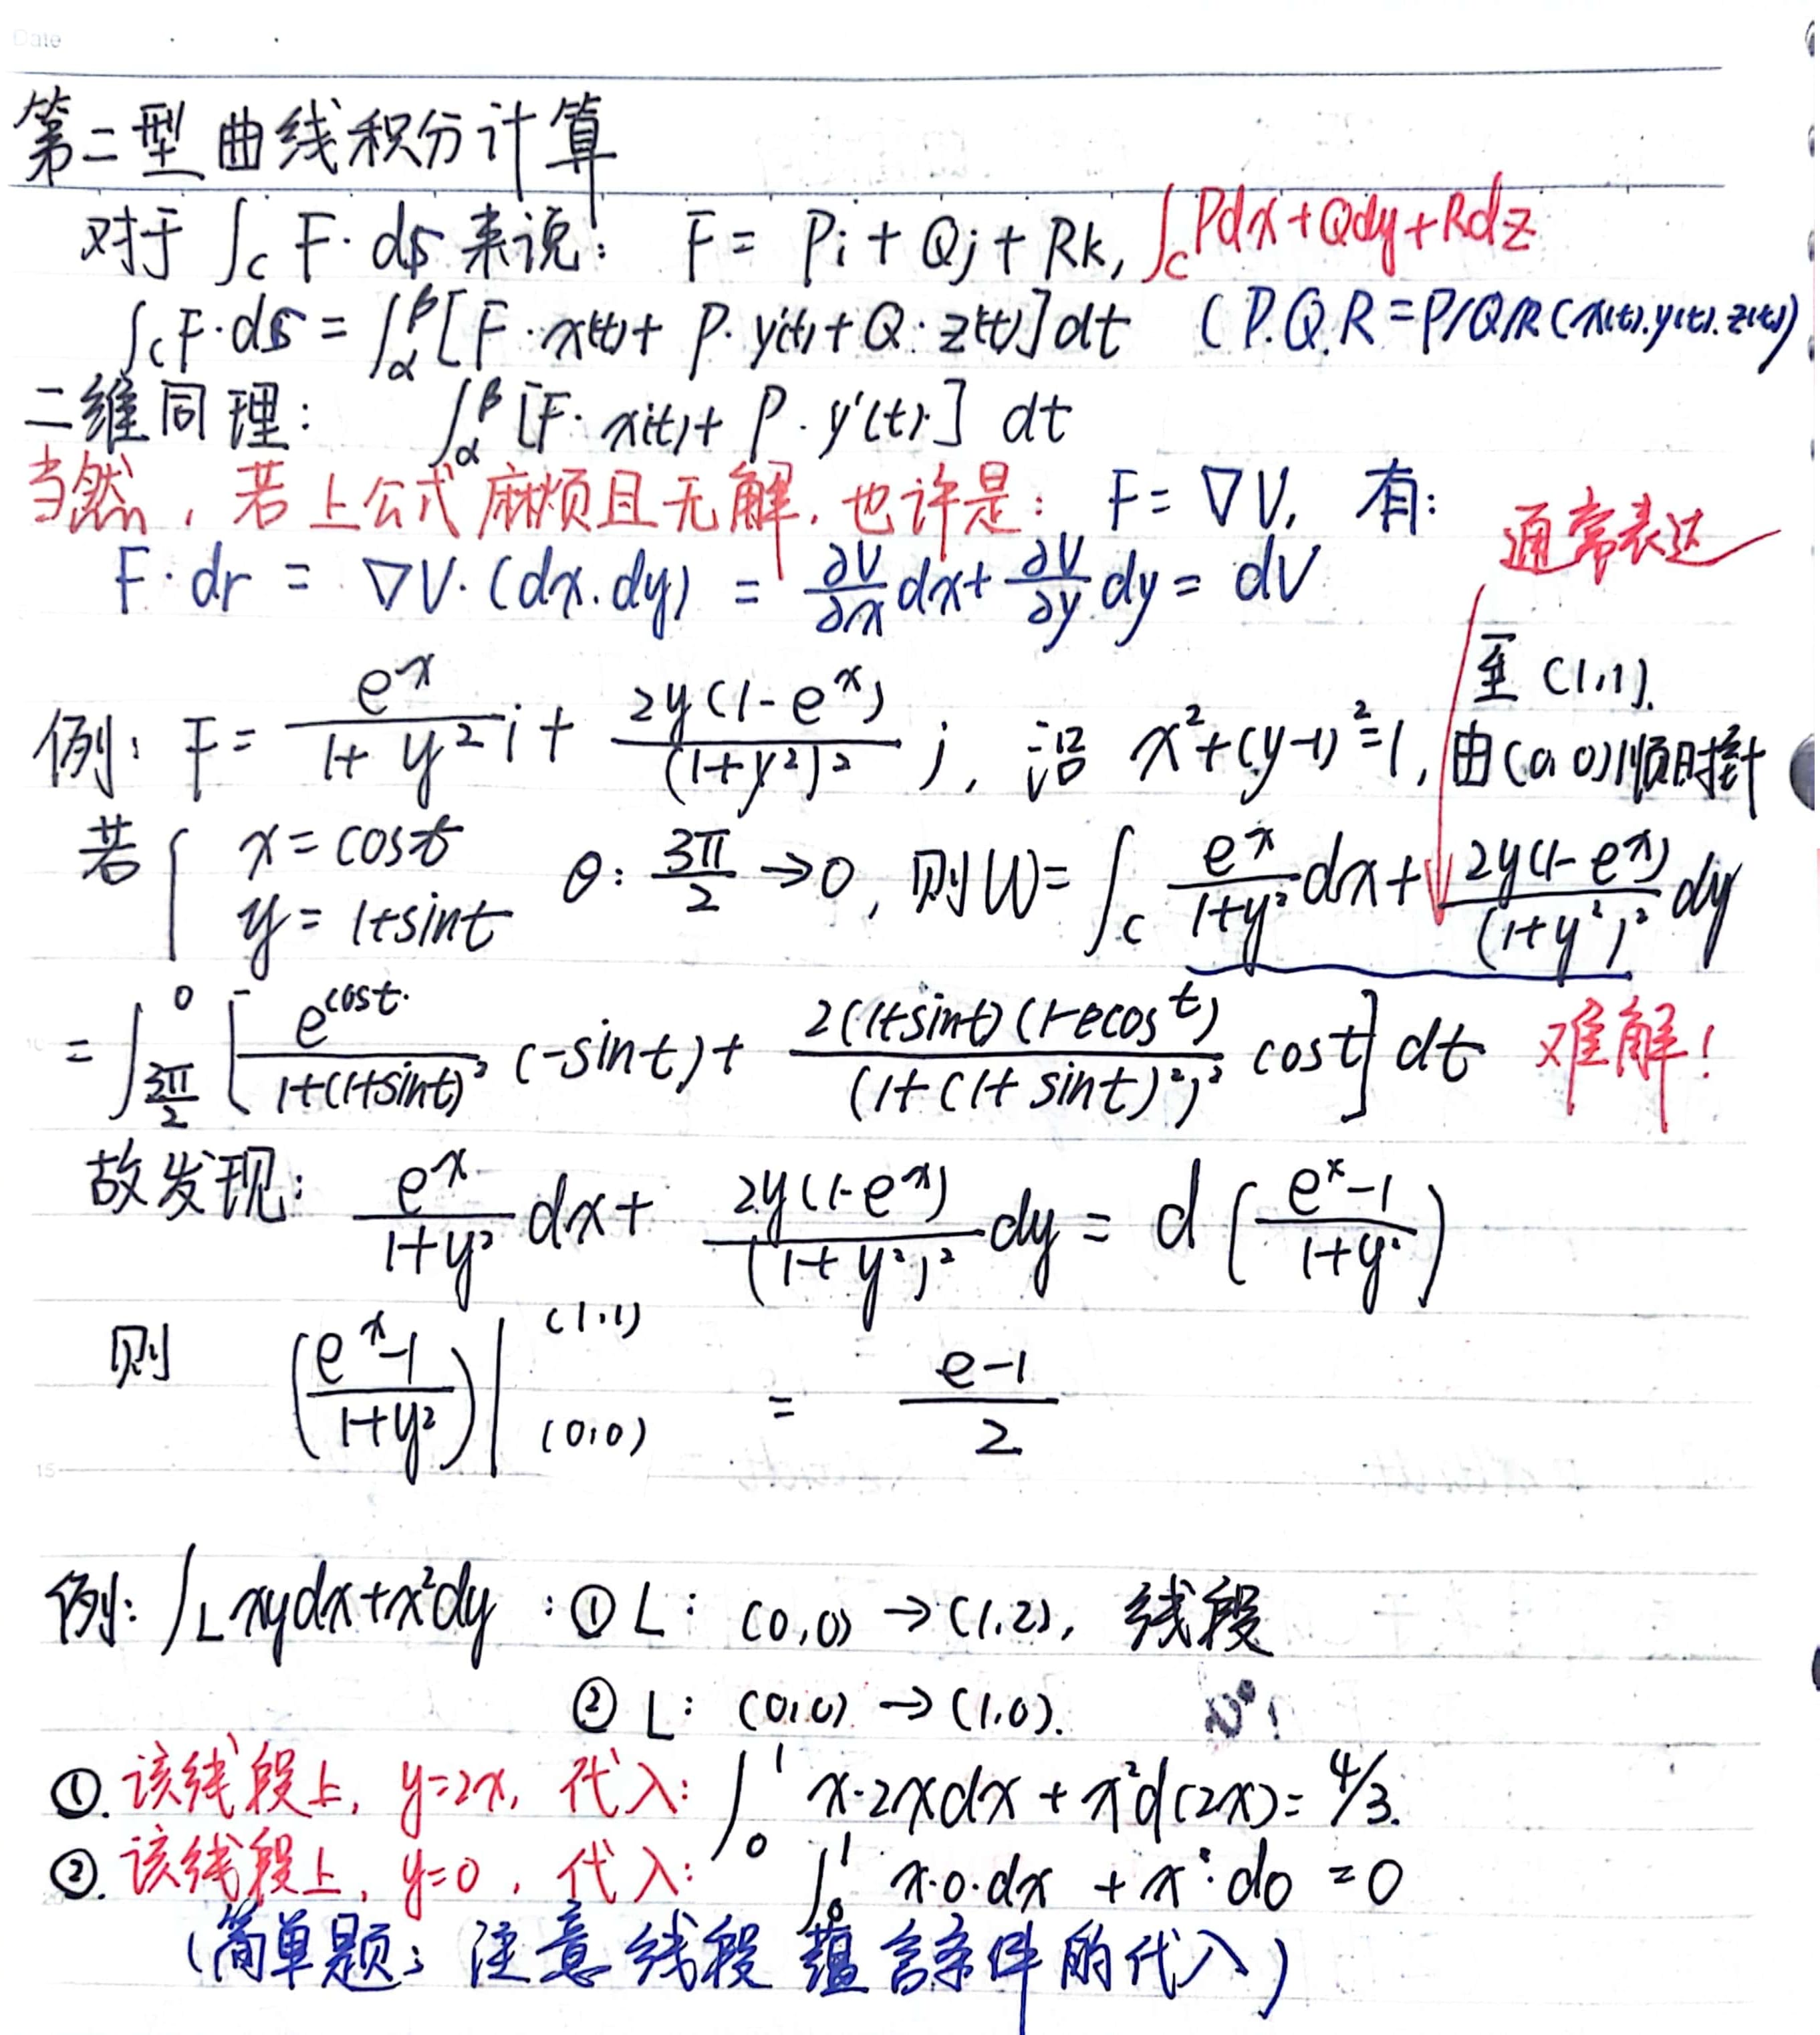 Date
第二型曲线积分计算
对于 ∫_C F·ds 来说: F = Pi + Qj + Rk, ∫_C Pdx+Qdy+Rdz
∫_C F·ds = ∫_α^β [F·x'(t) + P·y'(t) + Q·z'(t)]dt (P.Q.R = P/Q/R(x(t).y(t).z(t))
二维同理: ∫_α^β [F·x'(t) + P·y'(t)] dt
当然, 若上公式麻烦且无解, 也许是: F = ∇V, 有:
通常表达
F·dr = ∇V·(dx.dy) = ∂V/∂x dx + ∂V/∂y dy = dV
例: F = e^x/(1+y²) i + 2y(1-e^x)/(1+y²)² j, 沿 x²+(y-1)²=1, 由(0,0)顺时针
至 (1,1).
若 { x = cost y = 1+sint θ: 3π/2 → 0, 则 W = ∫_C e^x/(1+y²) dx + 2y(1-e^x)/(1+y²)² dy
= ∫_{3π/2}^0 [e^{cost}/(1+(1+sint)²) (-sint) + 2(1+sint)(1-e^{cost})/(1+(1+sint)²)² cost] dt 难解!
故发现: e^x/(1+y²) dx + 2y(1-e^x)/(1+y²)² dy = d((e^x-1)/(1+y²))
则 ((e^x-1)/(1+y²))|_{(0,0)}^{(1,1)} = (e-1)/2
10
15
例: ∫_L xydx+x²dy : ① L: (0,0) → (1,2), 线段
② L: (0,0) → (1,0).
①. 该线段上, y=2x, 代入: ∫_0^1 x·2xdx + x²d(2x) = 4/3.
②. 该线段上, y=0, 代入: ∫_0^1 x·0·dx + x²·d0 = 0
(简单题; 注意线段蕴含条件的代入)